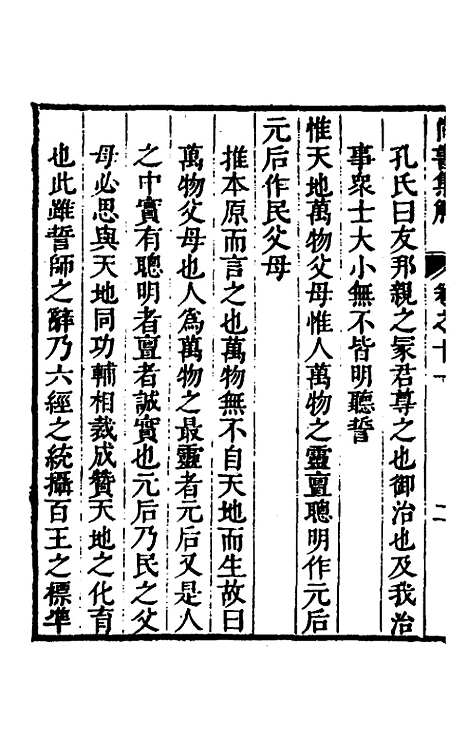 尚書集解 卷之十一 二
孔氏曰友邦親之冢君尊之也御治也及我治
事眾士大小無不皆明聽誓
惟天地萬物父母惟人萬物之靈亶聰明作元后
元后作民父母
推本原而言之也萬物無不自天地而生故曰
萬物父母也人為萬物之最靈者元后又是人
之中實有聰明者亶者誠實也元后乃民之父
母必思與天地同功輔相裁成贊天地之化育
也此雖誓師之辭乃六經之統攝百王之標準